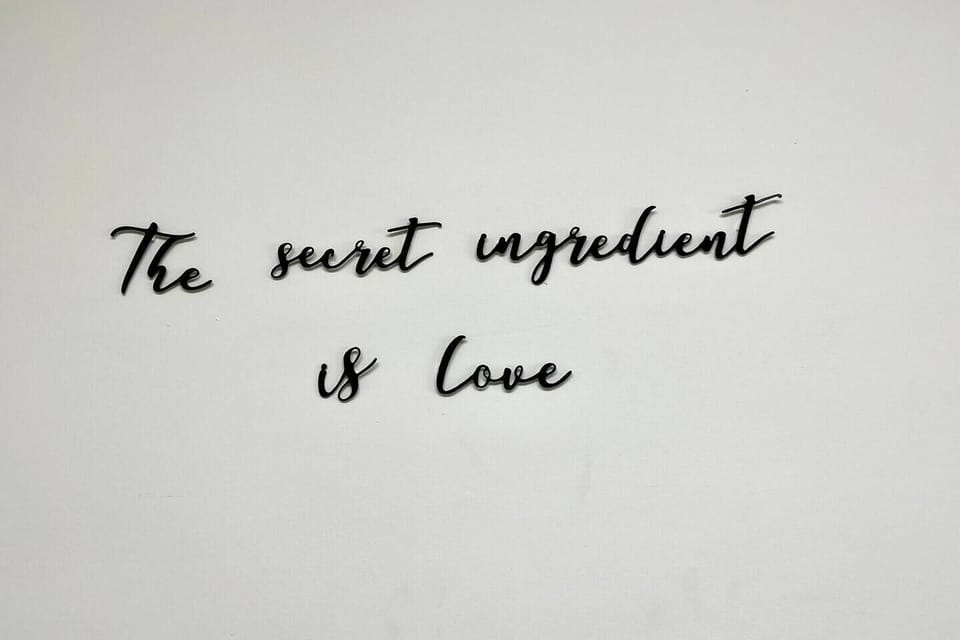 The secret ingredient
is Love